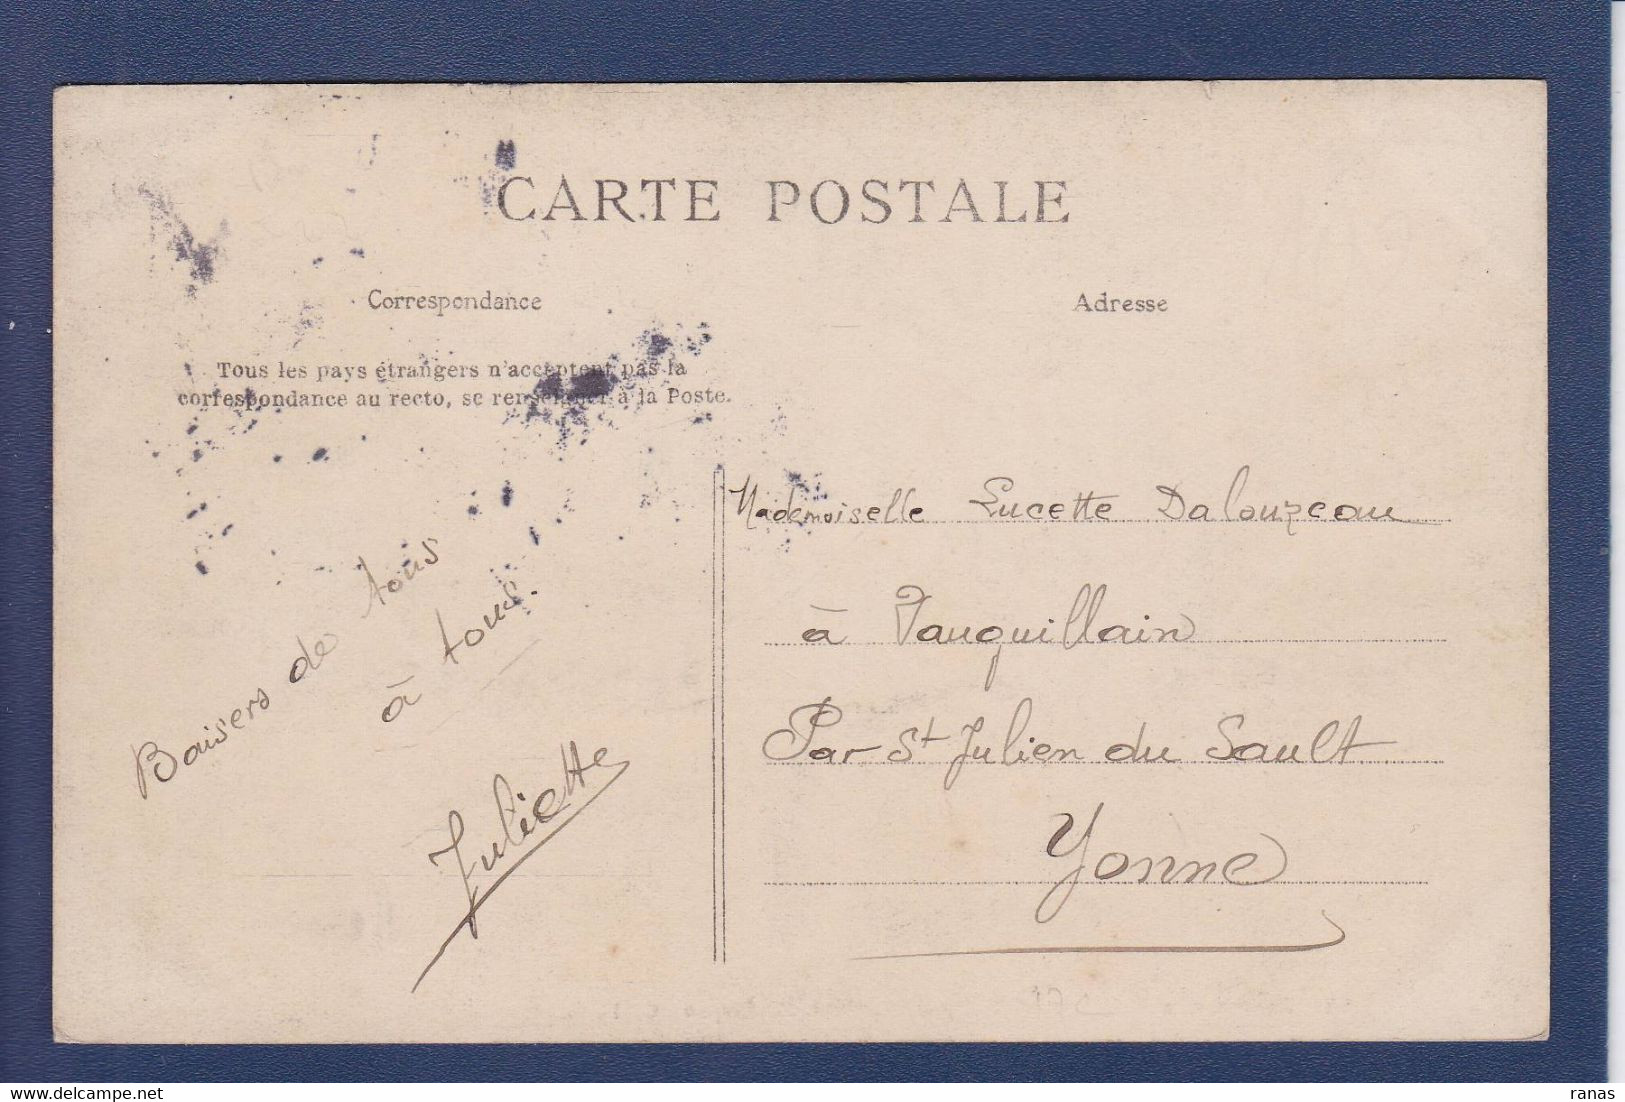 CARTE POSTALE
Correspondance
Tous les pays étrangers n'acceptent pas la
correspondance au recto, se renseigner à la Poste.
Baisers de tous
à tous.
Juliette
Adresse
Mademoiselle Lucette Dalouzeau
à Vauguillain
Par St Julien du Sault
Yonne
delcampe.net
ranas